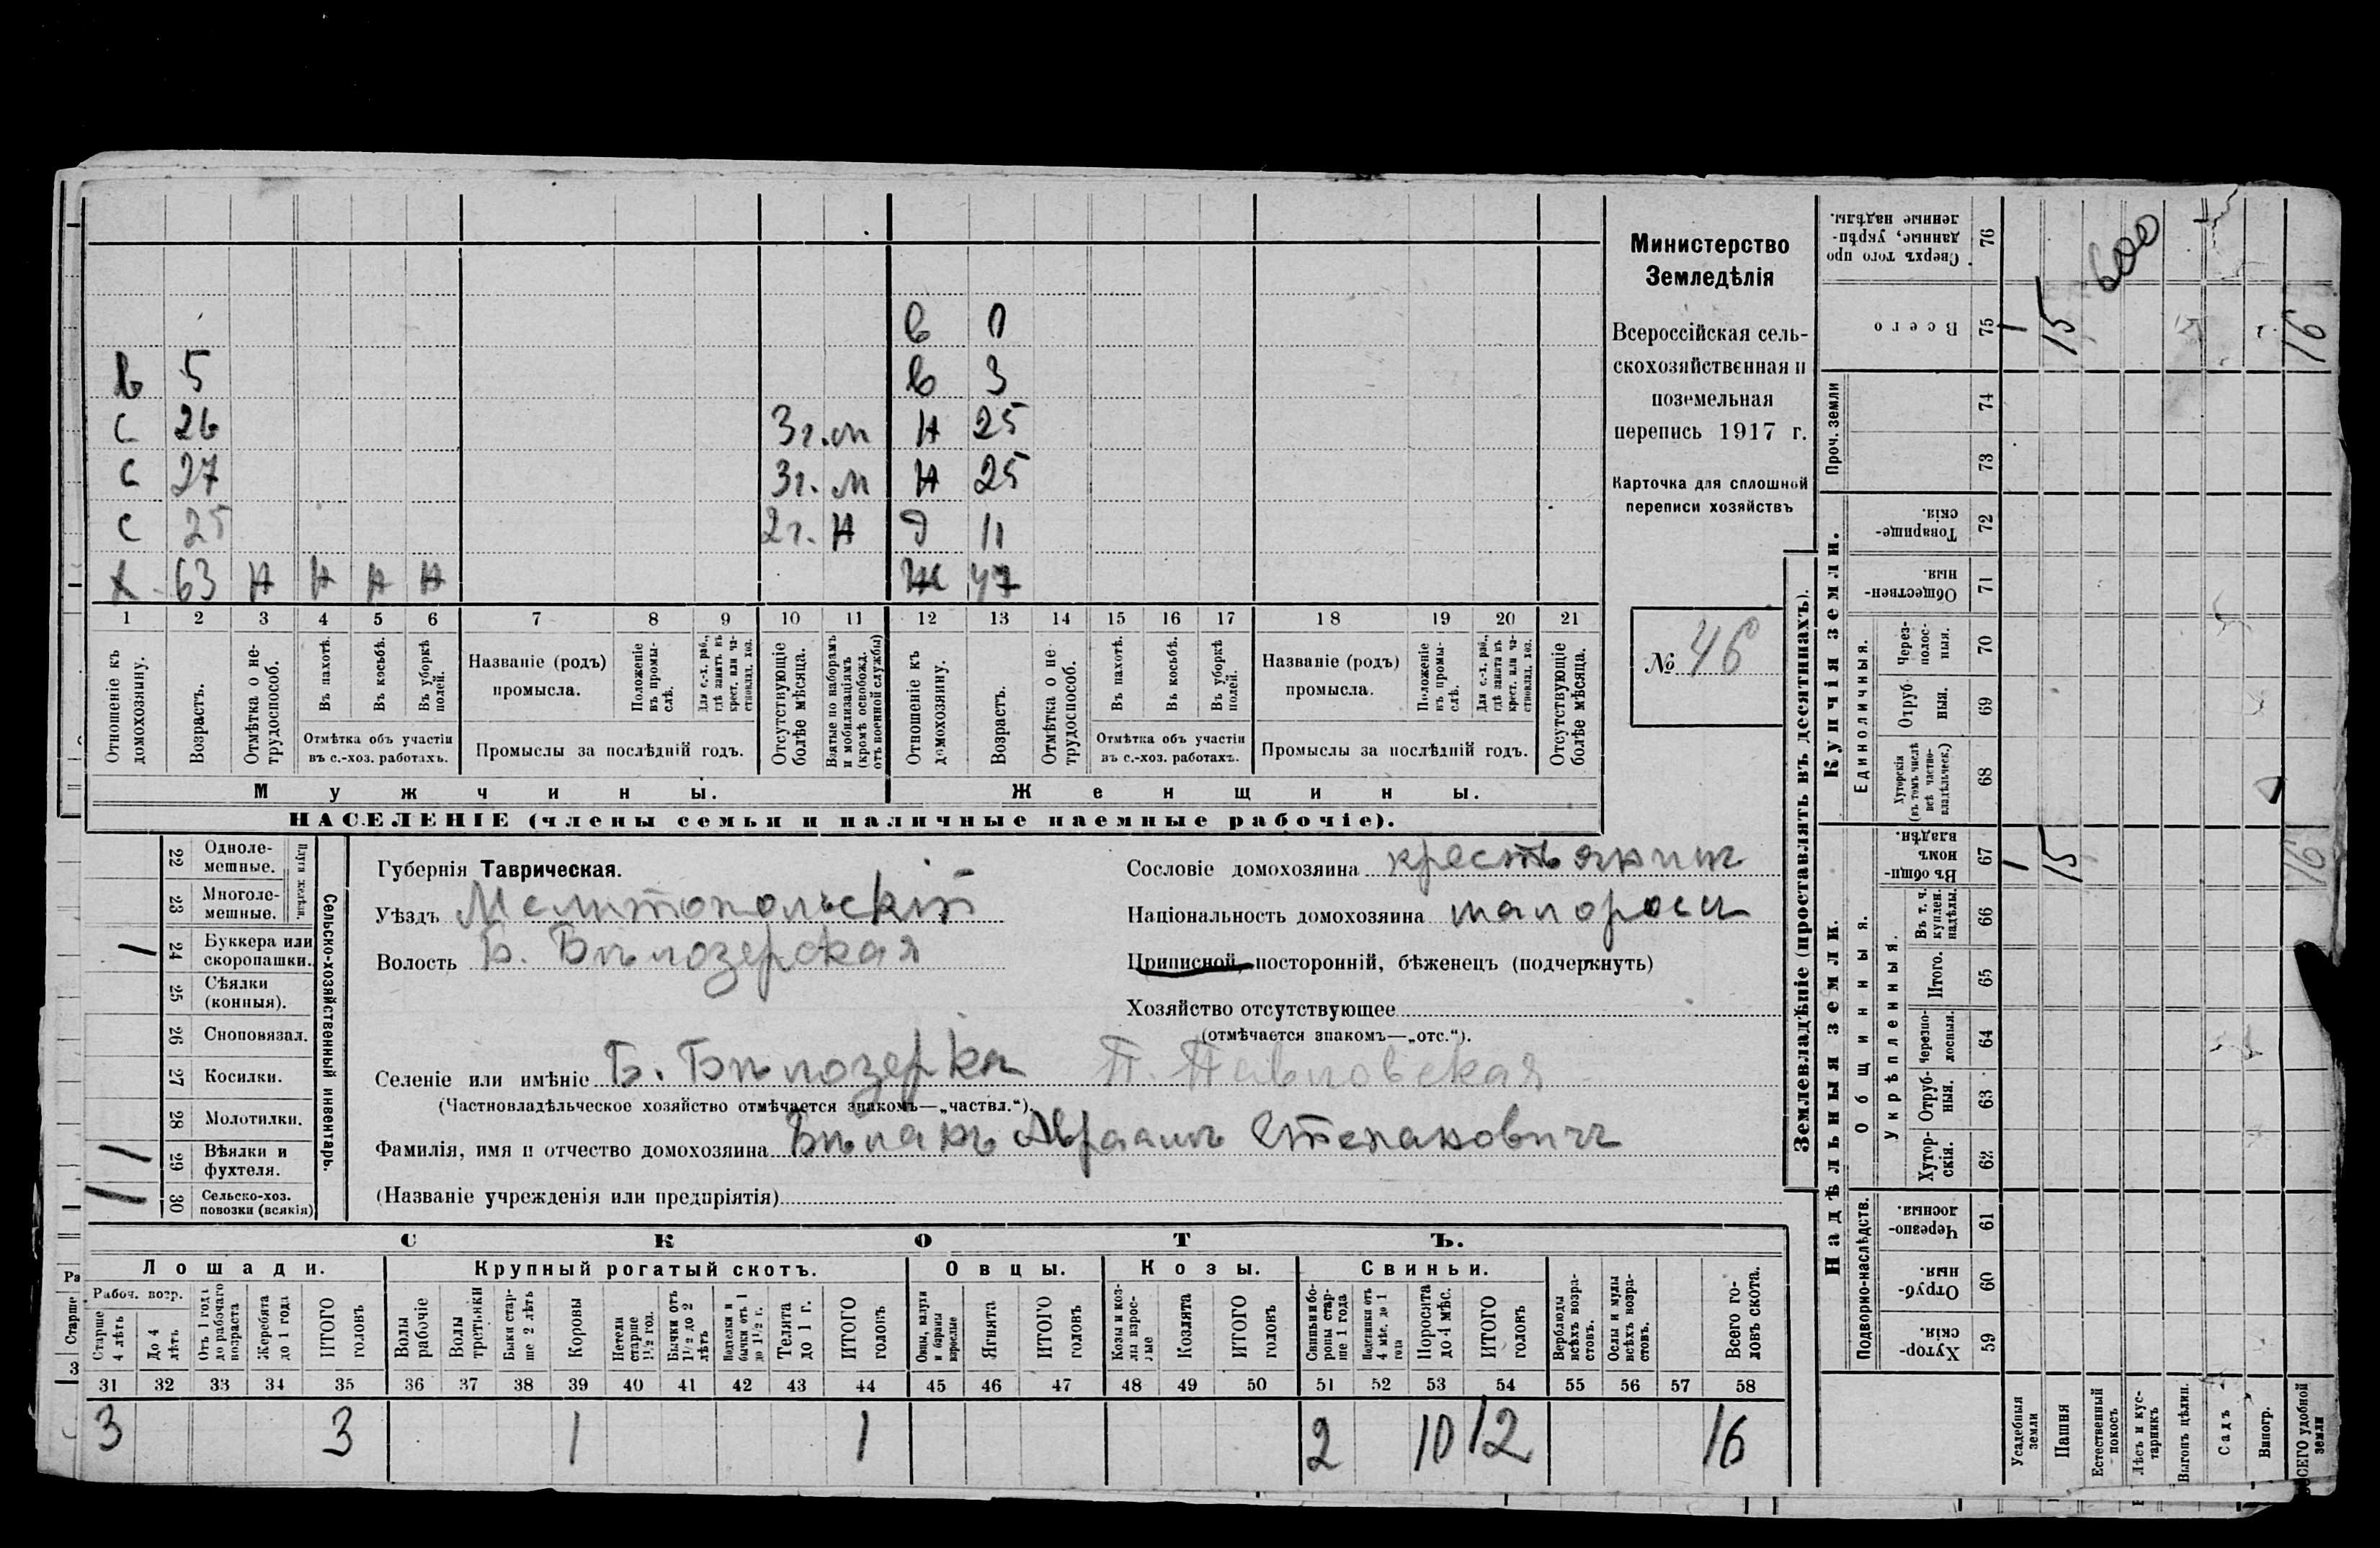 В 0
В 5 В 3
С 26 3 г. м Н 25
С 27 3 г. м Н 25
С 25 2 г. Н Д 11
Х 63 Н Н Н Н Ж 47
1 2 3 4 5 6 7 8 9 10 11 12 13 14 15 16 17 18 19 20 21
Отношеніе къ домохозяину.
Возрастъ.
Отмѣтка о нетрудоспособ.
Въ пахотѣ.
Въ косьбѣ.
Въ уборкѣ полей.
Отмѣтка объ участіи въ с.-хоз. работахъ.
Названіе (родъ) промысла.
Положеніе въ промыслѣ.
Для с.-х. раб., гдѣ занятъ въ крест. или частновлад. хоз.
Промыслы за послѣдній годъ.
Отсутствующіе болѣе мѣсяца.
Взятые по наборамъ и мобилизаціямъ (кромѣ освобожд. отъ военной службы)
Отношеніе къ домохозяину.
Возрастъ.
Отмѣтка о нетрудоспособ.
Въ пахотѣ.
Въ косьбѣ.
Въ уборкѣ полей.
Отмѣтка объ участіи въ с.-хоз. работахъ.
Названіе (родъ) промысла.
Положеніе въ промыслѣ.
Для с.-х. раб., гдѣ занята въ крест. или частновлад. хоз.
Промыслы за послѣдній годъ.
Отсутствующіе болѣе мѣсяца.
Мужчины. Женщины.
НАСЕЛЕНІЕ (члены семьи и наличные наемные рабочіе).
Министерство
Земледѣлія
Всероссійская сель-
скохозяйственная и
поземельная
перепись 1917 г.
Карточка для сплошной
переписи хозяйствъ
№ 46
Сельско-хозяйственный инвентарь.
Плуги желѣзн.
22 Однолемешные.
23 Многолемешные.
24 Буккера или скоропашки. 1
25 Сѣялки (конныя).
26 Сноповязал.
27 Косилки.
28 Молотилки.
29 Вѣялки и фухтеля. 1
30 Сельско-хоз. повозки (всякія) 1
Губернія Таврическая.
Уѣздъ Мелитопольскій
Волость Б. Бѣлозерская
Сословіе домохозяина крестьянинъ
Національность домохозяина малороссъ
Приписной, посторонній, бѣженецъ (подчеркнуть)
Хозяйство отсутствующее
(отмѣчается знакомъ—„отс.“).
Селеніе или имѣніе Б. Бѣлозерка П. Павловская
(Частновладѣльческое хозяйство отмѣчается знакомъ—„частвл.“).
Фамилія, имя и отчество домохозяина Бѣланъ Авраамъ Степановичъ
(Названіе учрежденія или предпріятія)
СКОТЪ.
Лошади. Крупный рогатый скотъ. Овцы. Козы. Свиньи.
Рабоч. возр.
Старше 4 лѣтъ
До 4 лѣтъ
Отъ 1 года до рабочаго возраста
Жеребята до 1 года
ИТОГО головъ
Волы рабочіе
Волы третьяки
Быки старше 2 лѣтъ
Коровы
Нетели старше 1½ год.
Бычки отъ 1½ до 2 лѣтъ
Подтелки и бычки отъ 1 до 1½ г.
Телята до 1 г.
ИТОГО головъ
Овцы, валухи и бараны взрослые
Ягнята
ИТОГО головъ
Козы и козлы взрослые
Козлята
ИТОГО головъ
Свиньи и боровы старше 1 года
Подсвинки отъ 4 мѣс. до 1 года
Поросята до 4 мѣс.
ИТОГО головъ
Верблюды всѣхъ возрастовъ.
Ослы и мулы всѣхъ возрастовъ.
Всего головъ скота.
31 32 33 34 35 36 37 38 39 40 41 42 43 44 45 46 47 48 49 50 51 52 53 54 55 56 57 58
3 3 1 1 2 10 12 16
Землевладѣніе (проставлять въ десятинахъ).
Купчія земли.
Надѣльныя земли.
76 Сверхъ того проданные, укрѣпленные надѣлы.
75 Всего 1 15 16
600
Проч. земли
74
73
72 Товарищескія.
71 Общественныя.
Единоличныя.
70 Черезполосныя.
69 Отрубныя.
68 Хуторскія (въ томъ числѣ всѣ частновладѣльческ.)
Общинныя.
67 Въ общинномъ владѣн. 1 15 16
Укрѣпленныя.
66 Въ т. ч. куплен. надѣлы.
65 Итого.
64 Черезполосныя.
63 Отрубныя.
62 Хуторскія.
Подворно-наслѣдств.
61 Черезполосныя.
60 Отрубныя.
59 Хуторскія.
Усадебныя земли
Пашня
Естественный покосъ
Лѣсъ и кустарникъ
Выгонъ цѣлин.
Садъ
Виногр.
ВСЕГО удобной земли